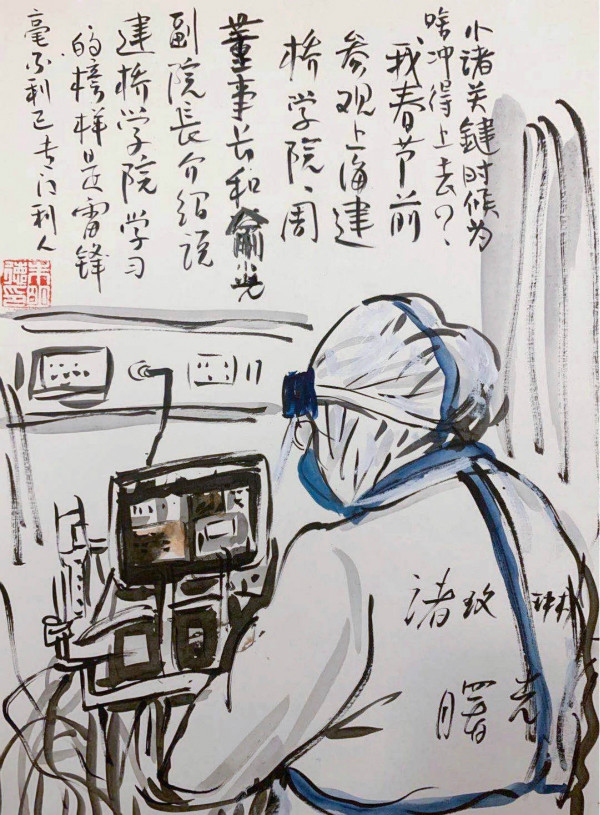 小诸关键时候为
啥冲得上去？
我春节前
参观上海建
桥学院、周
董事长和俞
副院長介绍说
建桥学院学习
的榜样是雷锋
毫不利己专门利人
诸玫琳
曙光